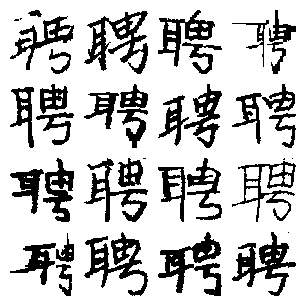 聘聘聘聘
聘聘聘聘
聘聘聘聘
聘聘聘聘